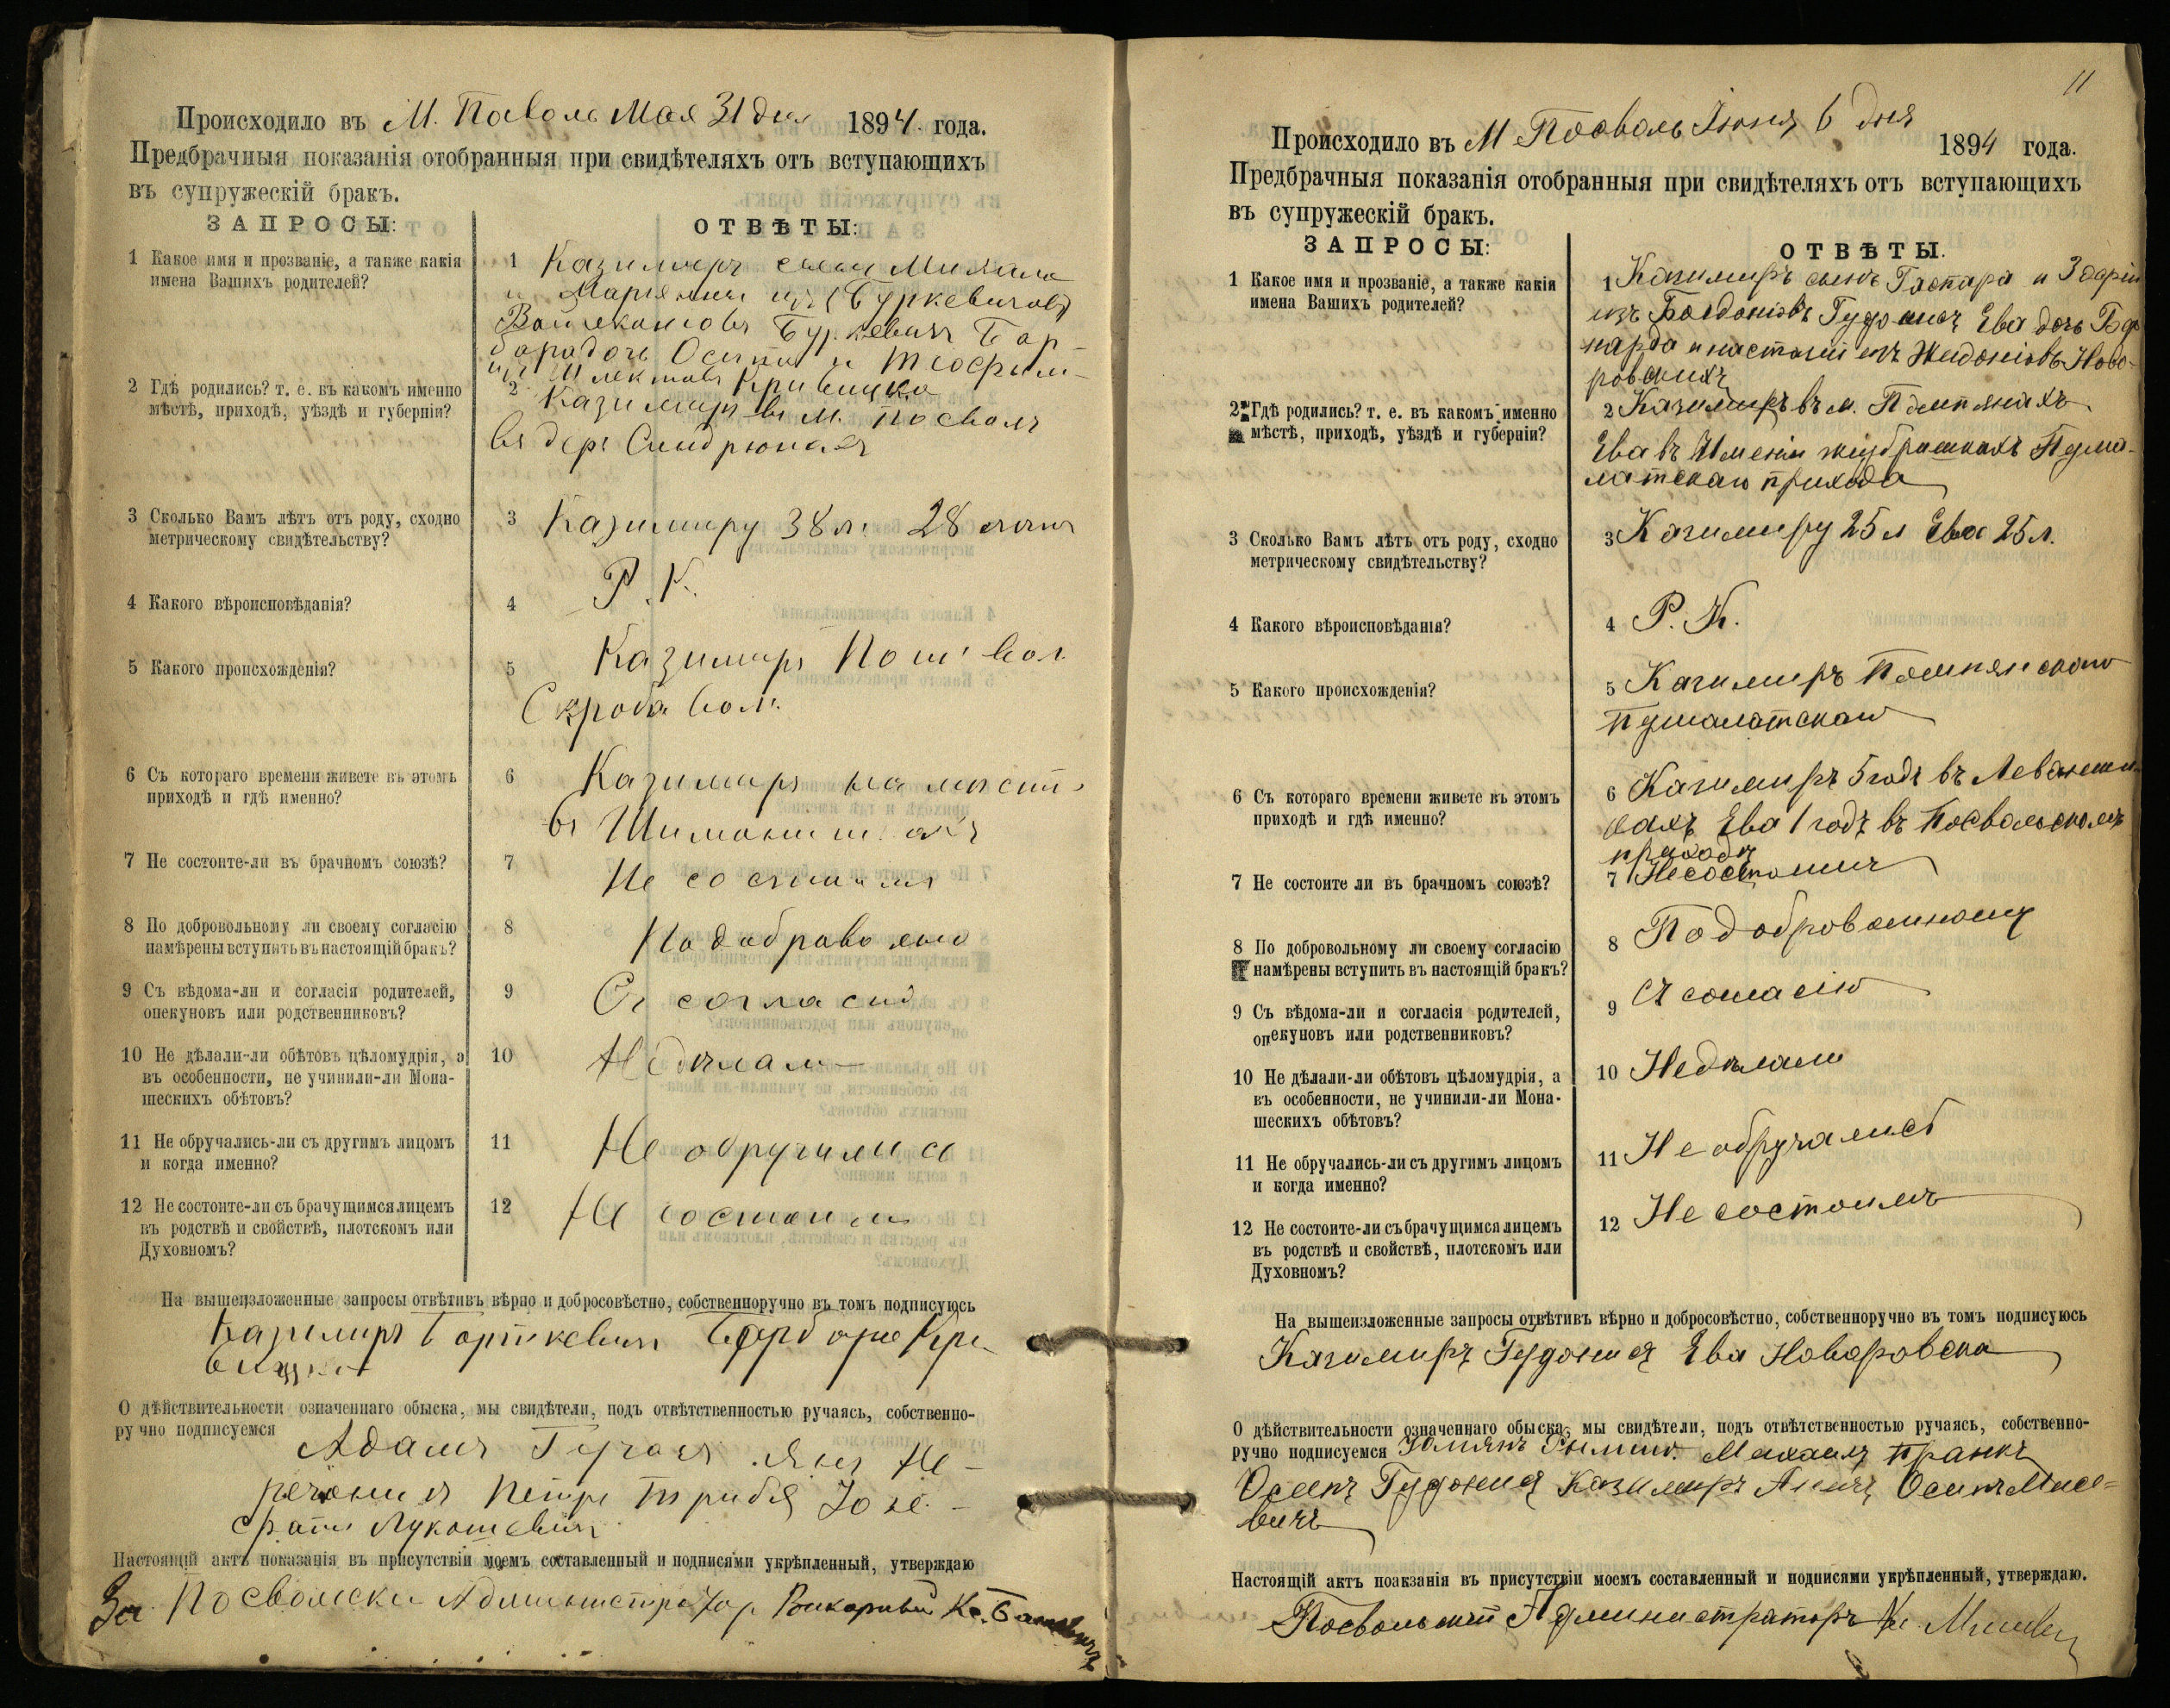 Происходило въ М. Поволь Мая 31 дня 1894. года.
Предбрачныя показанія отобранныя при свидѣтеляхъ отъ вступающихъ
въ супружескій бракъ.
ЗАПРОСЫ:
ОТВѢТЫ:
1 Какое имя и прозваніе, а также какія
имена Вашихъ родителей?
1 Казимиръ сынъ Михала
и Маріянны изъ Буркевичовъ
Буркевичъ Бар-
бара дочь Осипа и Теофили
2 Гдѣ родились? т. е. въ какомъ именно
мѣстѣ, приходѣ, уѣздѣ и губерніи?
2 Казимиръ въ м. Посволь
въ дер.
3 Сколько Вамъ лѣтъ отъ роду, сходно
метрическому свидѣтельству?
3 Казимиру 38 л. 28
4 Какого вѣроисповѣданія?
4 Р. К.
5 Какого происхожденія?
5 Казимиръ Пош. вол.
Скроба вол.
6 Съ котораго времени живете въ этомъ
приходѣ и гдѣ именно?
6 Казимиръ на мѣстѣ
въ
7 Не состоите-ли въ брачномъ союзѣ?
7 Не состоимъ
8 По добровольному ли своему согласію
намѣрены вступить въ настоящій бракъ?
8 По добравольно
9 Съ вѣдома-ли и согласія родителей,
опекуновъ или родственниковъ?
9 Съ согласія
10 Не дѣлали-ли обѣтовъ цѣломудрія, а
въ особенности, не учинили-ли Мона-
шескихъ обѣтовъ?
10 Недѣлали
11 Не обручались-ли съ другимъ лицомъ
и когда именно?
11 Не обручилися
12 Не состоите-ли съ брачущимся лицемъ
въ родствѣ и свойствѣ, плотскомъ или
Духовномъ?
12 Не состоимъ
На вышеизложенные запросы отвѣтивъ вѣрно и добросовѣстно, собственноручно въ томъ подписуюсь
Казимиръ Барбара
О дѣйствительности означеннаго обыска, мы свидѣтели, подъ отвѣтственностью ручаясь, собственно-
ручно подписуемся Адамъ
Петръ
Лукошевичъ
Настоящій актъ показанія въ присутствіи моемъ составленный и подписями укрѣпленный, утверждаю
За Посвольски Администратор Викарный Кс.
11
Происходило въ М Посволь Іюня 6 дня 1894 года.
Предбрачныя показанія отобранныя при свидѣтеляхъ отъ вступающихъ
въ супружескій бракъ.
ЗАПРОСЫ:
ОТВѢТЫ.
1 Какое имя и прозваніе, а также какія
имена Вашихъ родителей?
1 Казимиръ сынъ Гаспара и
изъ Гудонисъ Ева дочь Бер
нарда и изъ Жидонисовъ Ново-
ровскихъ
2 Гдѣ родились? т. е. въ какомъ именно
мѣстѣ, приходѣ, уѣздѣ и губерніи?
2 Казимиръ въ м. Помпянахъ
Ева въ Имѣніи Пума-
латскаго прихода
3 Сколько Вамъ лѣтъ отъ роду, сходно
метрическому свидѣтельству?
3 Казимиру 25 л Ева 25 л.
4 Какого вѣроисповѣданія?
4 Р. К.
5 Какого происхожденія?
5 Казимиръ Помпянскаго
Пумалатскаго
6 Съ котораго времени живете въ этомъ
приходѣ и гдѣ именно?
6 Казимиръ 5 годъ въ
Ева 1 годъ въ Посвольскомъ
приходѣ
7 Не состоите ли въ брачномъ союзѣ?
7 Несостоимъ
8 По добровольному ли своему согласію
намѣрены вступить въ настоящій бракъ?
8 По добровольному
9 Съ вѣдома-ли и согласія родителей,
опекуновъ или родственниковъ?
9 Съ согласію
10 Не дѣлали-ли обѣтовъ цѣломудрія, а
въ особенности, не учинили-ли Мона-
шескихъ обѣтовъ?
10 Недѣлали
11 Не обручались-ли съ другимъ лицомъ
и когда именно?
11 Не обручались
12 Не состоите-ли съ брачущимся лицемъ
въ родствѣ и свойствѣ, плотскомъ или
Духовномъ?
12 Не состоимъ
На вышеизложенные запросы отвѣтивъ вѣрно и добросовѣстно, собственноручно въ томъ подписуюсь
Казимиръ Гудонисъ Ева Новоровска
О дѣйствительности означеннаго обыска, мы свидѣтели, подъ отвѣтственностью ручаясь, собственно-
ручно подписуемся Михаилъ
Осипъ Гудонисъ Казимиръ Осипъ Мисе-
вичъ
Настоящій актъ поакзанія въ присутствіи моемъ составленный и подписями укрѣпленный, утверждаю.
Посвольскій Администраторъ